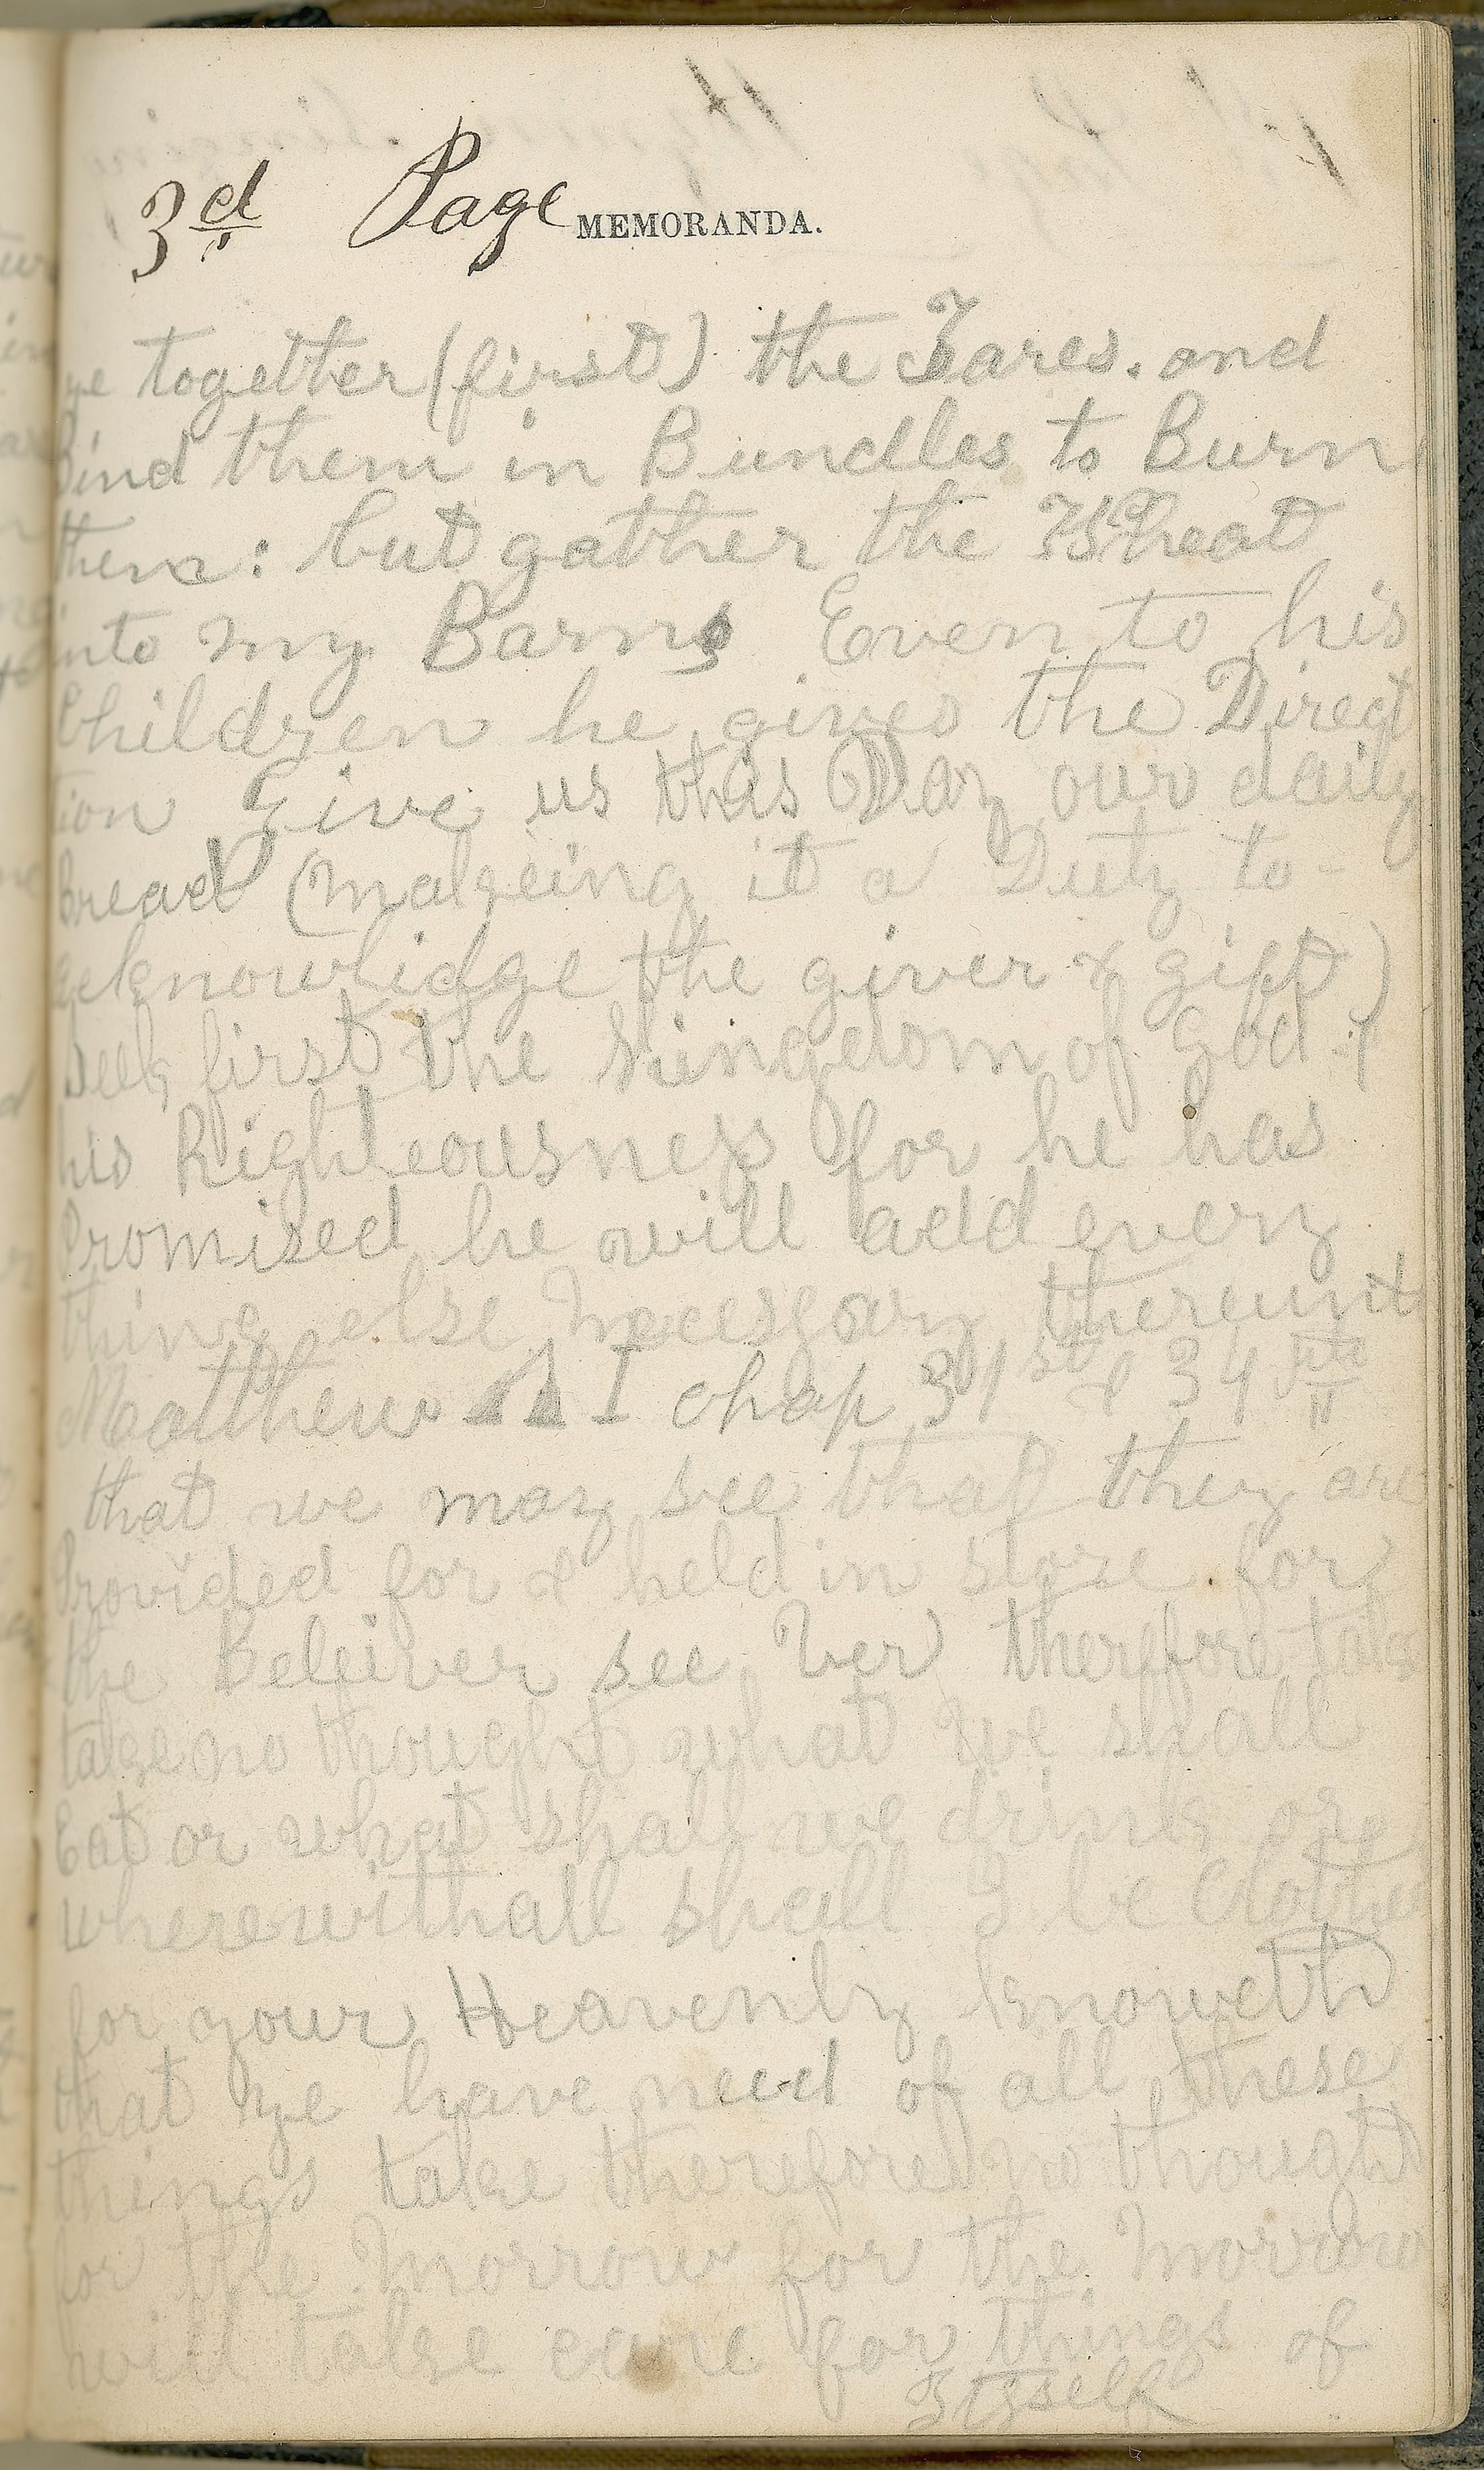 3d Page MEMORANDA.
ye together (first) the Tares. and
Bind them in Bundles to Burn
them: but gather the Wheat
into my Barns Even to his
Children he gives the Direct
tion Give us this Day our daily
Bread (makeing it a Duty to-
acknowlidge the giver & gift)
Seek first the kingdom of God &
his Righteousness for he has
Promised he will add every
thing else Necessary thereunt
Matthew I chap 31st & 34
that we may see that they are
Provided for & held in store for
the Beleiver see Ver therefore take
take no thought what we shall
Eat or what shall we drink or
wherewithall shall I be Clothed
for your Heavenly knoweth
that ye have need of all these
things take therefore no thought
for the Morrow for the Morrow
will take care for things of
itself